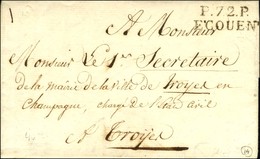 P.72.P.
ECOUEN
A Monsieur
Monsieur Le 1er Secretaire
de la mairie de la ville de Troyes en
Champagne, chargé de l'Etat Civil
A Troyes